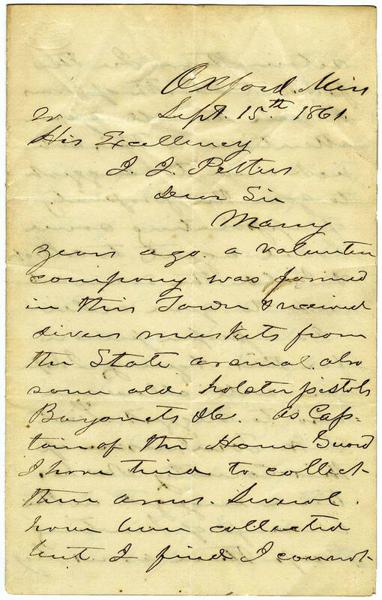 Oxford. Miss
Sept. 15th 1861.
To
His Excellency
J. J. Pettus
Dear Sir
Many
years ago a volunteer
company was formed
in this Town & received
divers muskets from
the State arsenal. also
some old holster pistols
Bayonets &c. As Cap-
tain of the Home Guard
I have tried to collect
these arms. Several.
have been collected
but I find I cannot